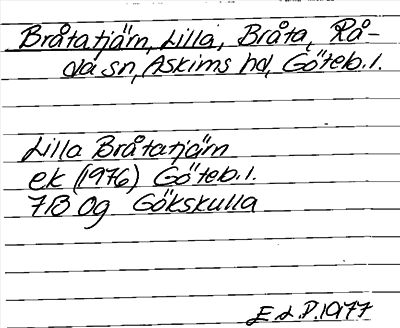 Bråtatjärn, Lilla, Bråta, Rå-
da sn, Askims hd, Göteb. l.
Lilla Bråtatjärn
ek (1976) Göteb. l.
7B 0g Gökskulla
E L.P. 1977